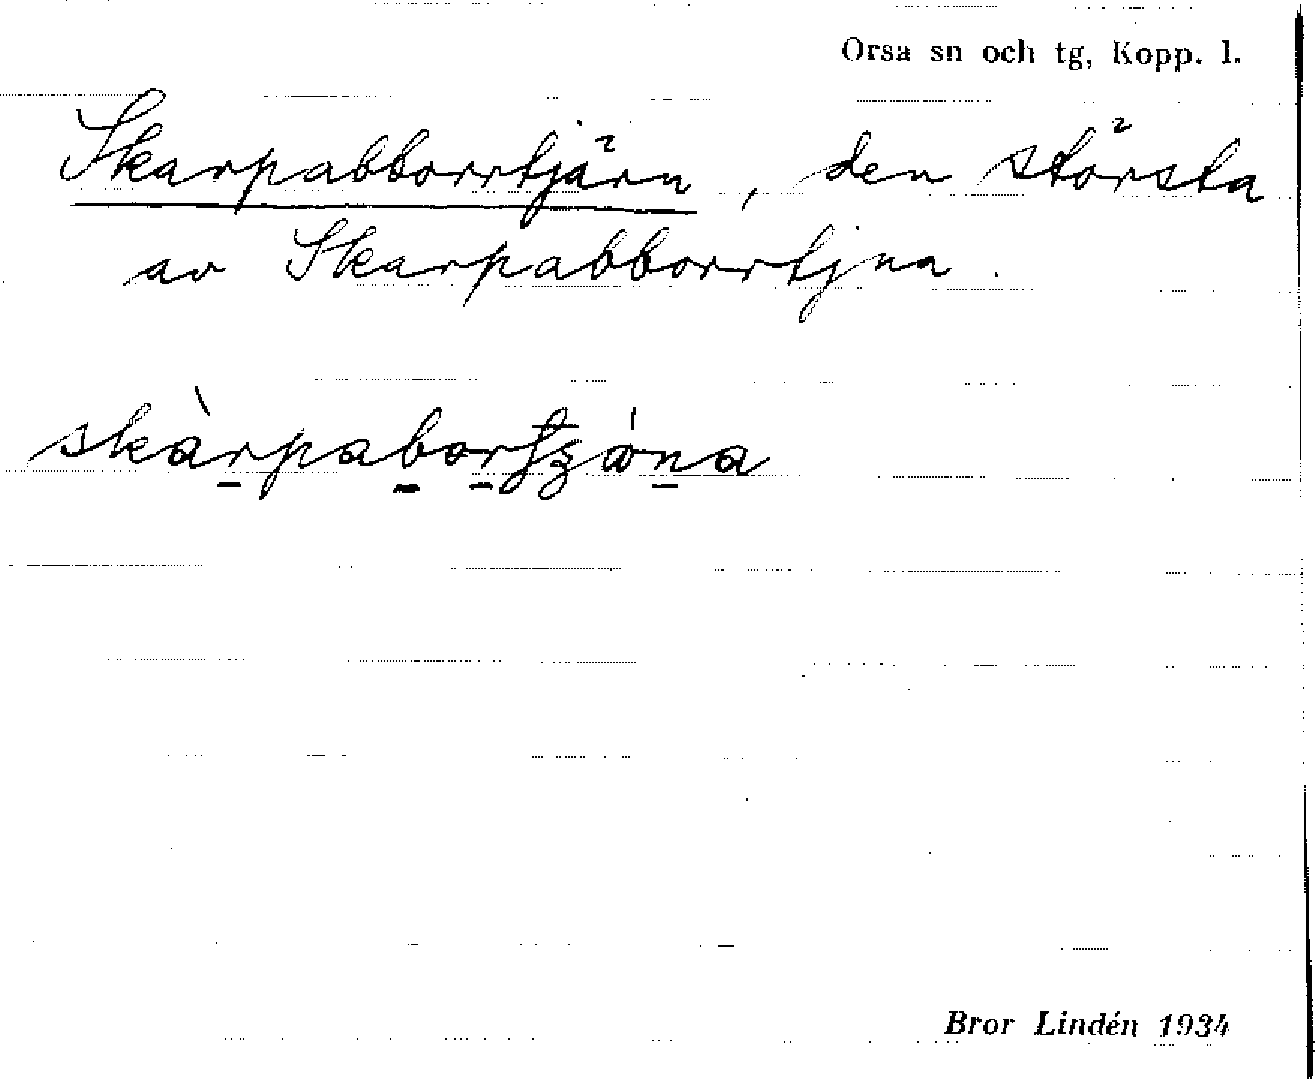 Orsa sn och tg, Kopp. l.
Skarpabborrtjärn, den största
av Skarpabborrtjna.
Bror Lindén 1934